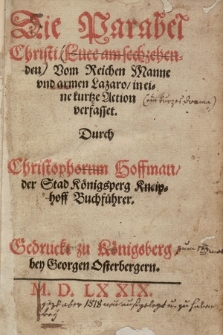 Die Parabel
Christi (Luce am sechzehen-
den) Vom Reichen Manne
vnd armen Lazaro/ in ei-
ne kurtze Action
verfasset.
Durch
Christophorum Hoffman/
der Stad Königsperg Kneip-
hoff Buchführer.
Gedruckt zu Königsberg
bey Georgen Osterbergern.
M. D. LXXIX.